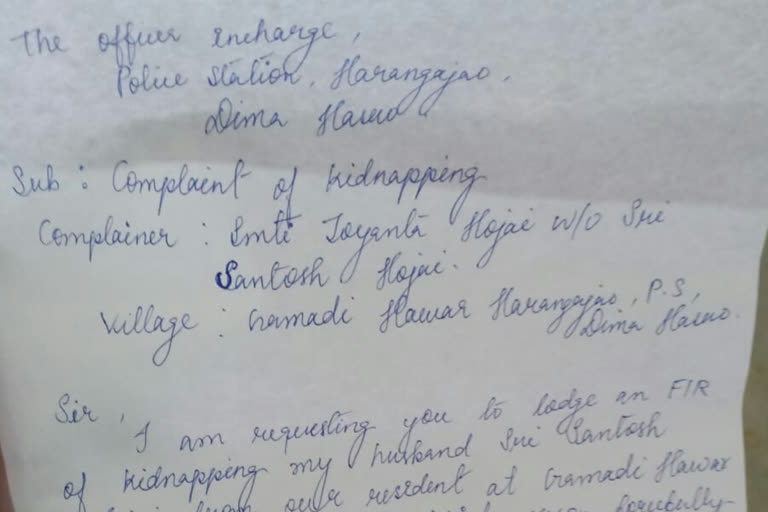 The officer encharge,
Police Station, Harangajao,
Dima Hasao
Sub : Complaint of kidnapping
Complainer : Smti Joyanta Hojai w/o Sri
Santosh Hojai.
Village : Gramadi Hawar Harangajao, P.S,
Dima Hasao.
Sir,
I am requesting you to lodge an FIR
of kidnapping my husband Sri Santosh
from our resident at Gramadi Hawar
forcefully